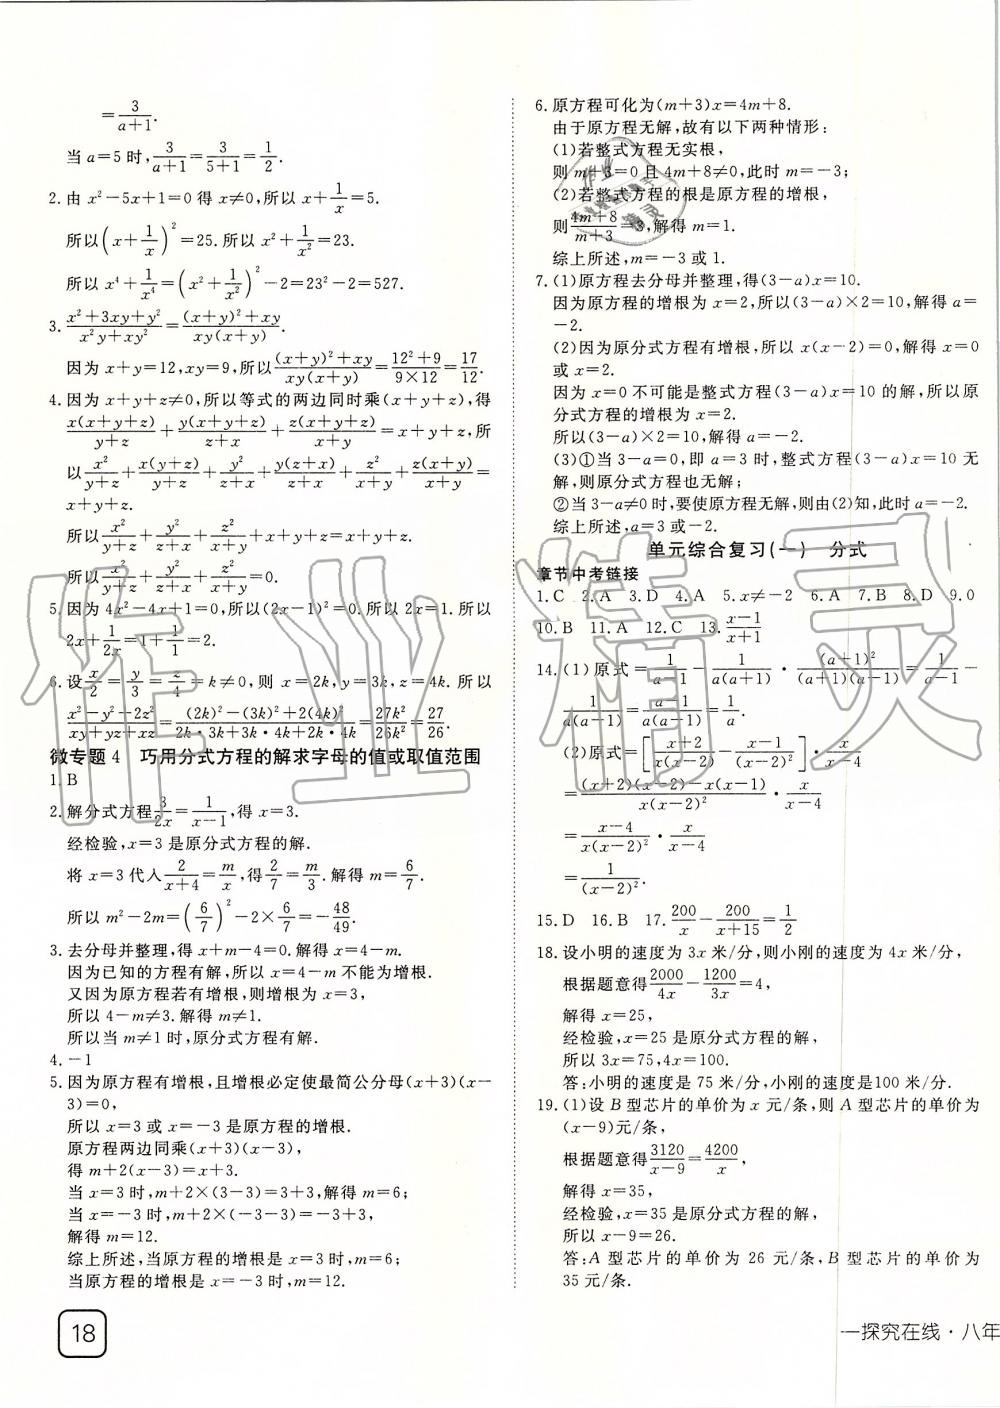 =3/(a+1).
当 a=5 时,3/(a+1)=3/(5+1)=1/2.
2.由 x²-5x+1=0 得 x≠0,所以 x+1/x=5.
所以(x+1/x)²=25.所以 x²+1/x²=23.
所以 x⁴+1/x⁴=(x²+1/x²)²-2=23²-2=527.
3.(x²+3xy+y²)/(x²y+xy²)=((x+y)²+xy)/(xy(x+y)).
因为 x+y=12,xy=9,所以((x+y)²+xy)/(xy(x+y))=(12²+9)/(9×12)=17/12.
4.因为 x+y+z≠0,所以等式的两边同时乘(x+y+z),得
x(x+y+z)/(y+z)+y(x+y+z)/(z+x)+z(x+y+z)/(x+y)=x+y+z,所
以x²/(y+z)+x(y+z)/(y+z)+y²/(z+x)+y(z+x)/(z+x)+z²/(x+y)+z(x+y)/(x+y)=
x+y+z.
所以x²/(y+z)+y²/(z+x)+z²/(x+y)+x+y+z=x+y+z.
所以x²/(y+z)+y²/(z+x)+z²/(x+y)=0.
5.因为 4x²-4x+1=0,所以(2x-1)²=0.所以 2x=1.所以
2x+1/2x=1+1/1=2.
6.设x/2=y/3=z/4=k≠0,则 x=2k,y=3k,z=4k.所以
(x²-y²-2z²)/(xy+yz+xz)=((2k)²-(3k)²+2(4k)²)/(2k·3k+3k·4k+2k·4k)=27k²/26k²=27/26.
微专题 4 巧用分式方程的解求字母的值或取值范围
1.B
2.解分式方程3/2x=1/(x-1),得 x=3.
经检验,x=3 是原分式方程的解.
将 x=3 代入2/(x+4)=m/x,得2/7=m/3.解得 m=6/7.
所以 m²-2m=(6/7)²-2×6/7=-48/49.
3.去分母并整理,得 x+m-4=0.解得 x=4-m.
因为已知的方程有解,所以 x=4-m 不能为增根.
又因为原方程若有增根,则增根为 x=3,
所以 4-m≠3.解得 m≠1.
所以当 m≠1 时,原分式方程有解.
4.-1
5.因为原方程有增根,且增根必定使最简公分母(x+3)(x-
3)=0,
所以 x=3 或 x=-3 是原方程的增根.
原方程两边同乘(x+3)(x-3),
得 m+2(x-3)=x+3.
当 x=3 时,m+2×(3-3)=3+3,解得 m=6;
当 x=-3 时,m+2×(-3-3)=-3+3,
解得 m=12.
综上所述,当原方程的增根是 x=3 时,m=6;
当原方程的增根是 x=-3 时,m=12.
18
6.原方程可化为(m+3)x=4m+8.
由于原方程无解,故有以下两种情形:
(1)若整式方程无实根,
则 m+3=0 且 4m+8≠0,此时 m=-3;
(2)若整式方程的根是原方程的增根,
则(4m+8)/(m+3)=3,解得 m=1.
综上所述,m=-3 或 1.
7.(1)原方程去分母并整理,得(3-a)x=10.
因为原方程的增根为 x=2,所以(3-a)×2=10,解得 a=
-2.
(2)因为原分式方程有增根,所以 x(x-2)=0,解得 x=0
或 x=2.
因为 x=0 不可能是整式方程(3-a)x=10 的解,所以原
分式方程的增根为 x=2.
所以(3-a)×2=10,解得 a=-2.
(3)①当 3-a=0,即 a=3 时,整式方程(3-a)x=10 无
解,则原分式方程也无解;
②当 3-a≠0 时,要使原方程无解,则由(2)知,此时 a=-2.
综上所述,a=3 或-2.
单元综合复习(一) 分式
章节中考链接
1.C 2.A 3.D 4.A 5.x≠-2 6.A 7.B 8.D 9.0
10.B 11.A 12.C 13.(x-1)/(x+1)
14.(1)原式=1/(a-1)-1/(a(a+1))·(a+1)²/((a+1)(a-1))=1/(a-1)-
1/(a(a-1))=(a-1)/(a(a-1))=1/a.
(2)原式=[(x+2)/(x(x-2))-(x-1)/(x-2)²]·x/(x-4)
=((x+2)(x-2)-x(x-1))/(x(x-2)²)·x/(x-4)
=(x-4)/(x(x-2)²)·x/(x-4)
=1/(x-2)².
15.D 16.B 17.200/x-200/(x+15)=1/2
18.设小明的速度为 3x 米/分,则小刚的速度为 4x 米/分,
根据题意得2000/4x-1200/3x=4,
解得 x=25,
经检验,x=25 是原分式方程的解,
所以 3x=75,4x=100.
答:小明的速度是 75 米/分,小刚的速度是100 米/分.
19.(1)设 B 型芯片的单价为 x 元/条,则 A 型芯片的单价为
(x-9)元/条,
根据题意得3120/(x-9)=4200/x,
解得 x=35,
经检验,x=35 是原分式方程的解,
所以 x-9=26.
答:A 型芯片的单价为 26 元/条,B 型芯片的单价为
35 元/条.
一探究在线·八年
作业精灵